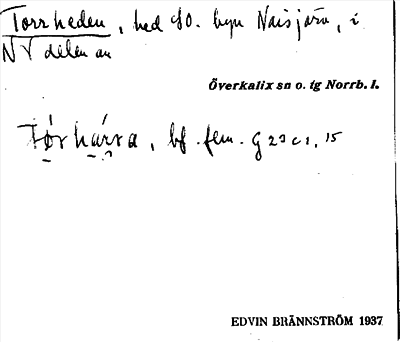 Torrheden, hed SO. byn Naisjärv, i
NV delen av
Överkalix sn o. tg Norrb. l.
Tórhárra, bf. fem. G 23 c 1, 15
EDVIN BRÄNNSTRÖM 1937